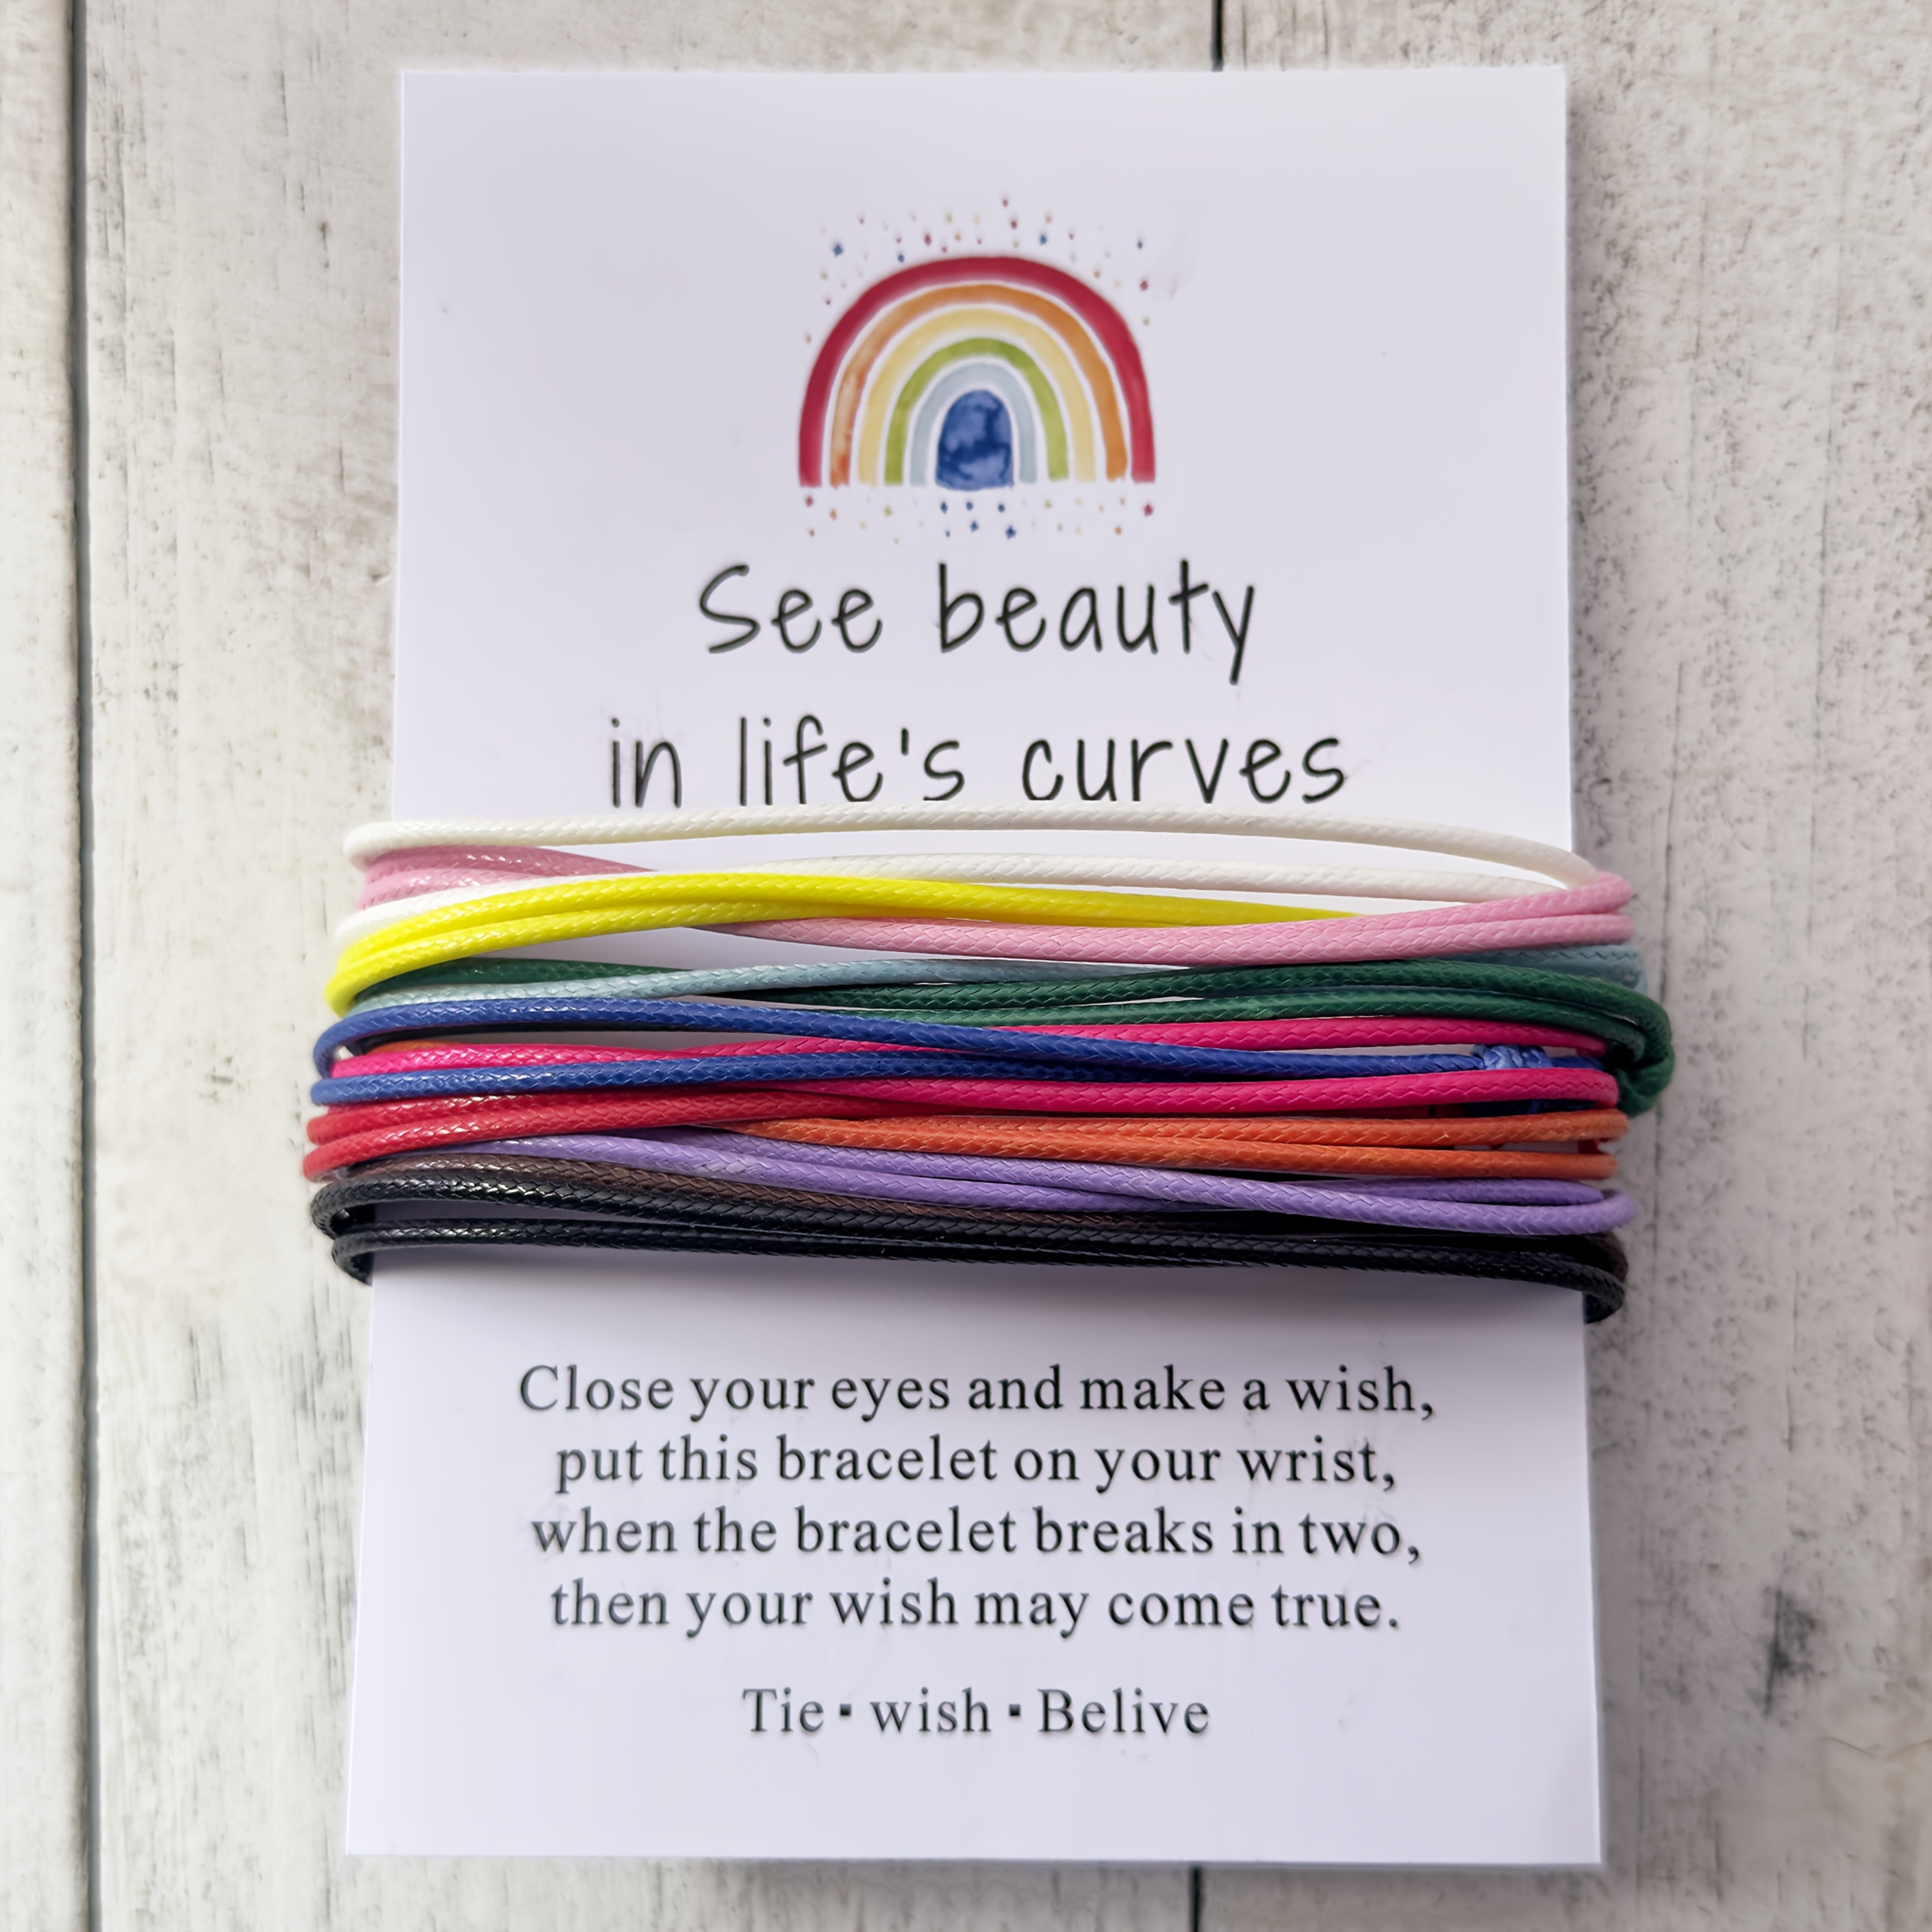 See beauty
in life's curves
Close your eyes and make a wish,
put this bracelet on your wrist,
when the bracelet breaks in two,
then your wish may come true.
Tie ▪ wish ▪ Belive